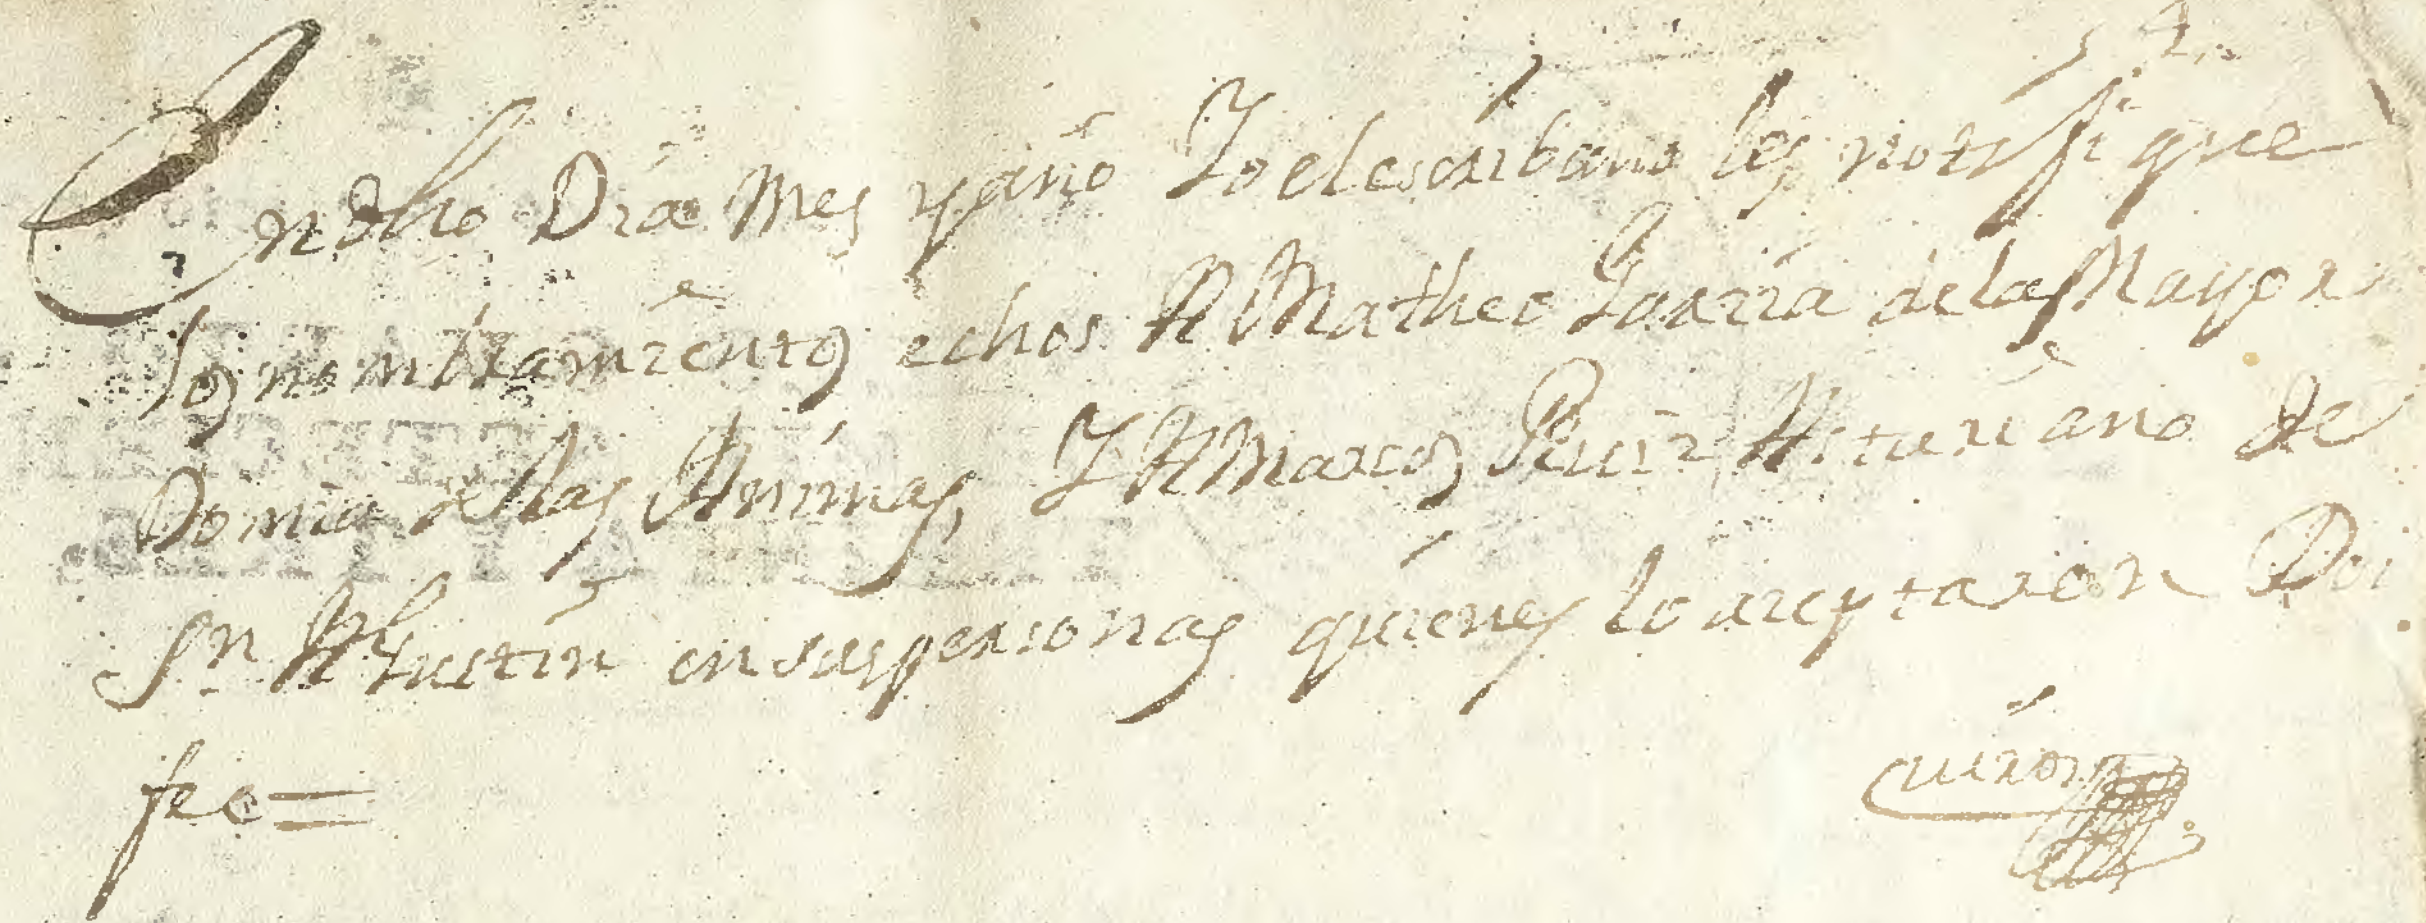 En dho Dia Mes y año Yo el escribano les notifique
los nombramientos echos A Matheo Garzia de las Mayor
Domia de las Animas, Y A Marcos Ruiz Hituriano de
Sn. Agustin en sus personas quienes lo azeptaron Doi
fee =